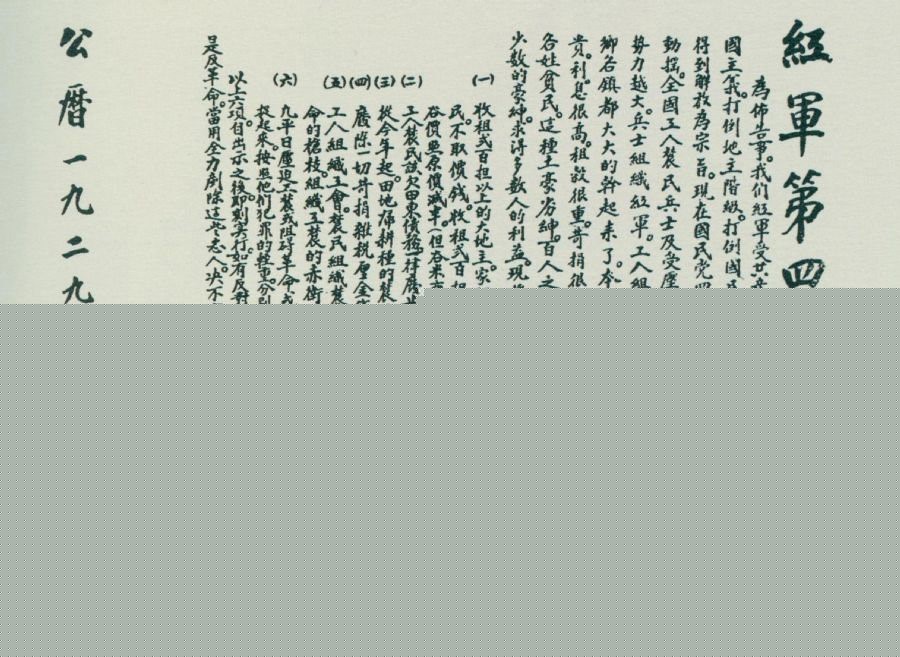 紅軍第四
為佈告事。我们紅軍受共產
國主義。打倒地主階級。打倒國民
得到解放為宗旨。現在國民党四
動搖。全國工人農民兵士及受壓
勢力越大。兵士組織紅軍。工人組
鄉各鎮都大大的幹起来了。本
貴。利息很高。租穀很重。苛捐很
各姓貧民。這種土豪劣紳。百人之
少数的豪紳。求得多数人的利益。現
(一) 收租弍百担以上的大地主。家
民。不取價钱。收租弍百担
谷價照原價減半。(但谷米
(二) 工人農民該欠田東債務。一律廢
(三) 從今年起。田地歸耕種的農
(四) 廢除一切苛捐雜税厘金
(五) 工人組織工會。農民組織農
命的槍枝。組織工農的赤衛
(六) 凡平日壓迫工農或阻碍革命
捉起来。按照他们犯罪的輕重。分别
以上六項自出示之後。即刻实行。如有反對
是反革命。當用全力剷除這些惡人。决不
公曆一九二九